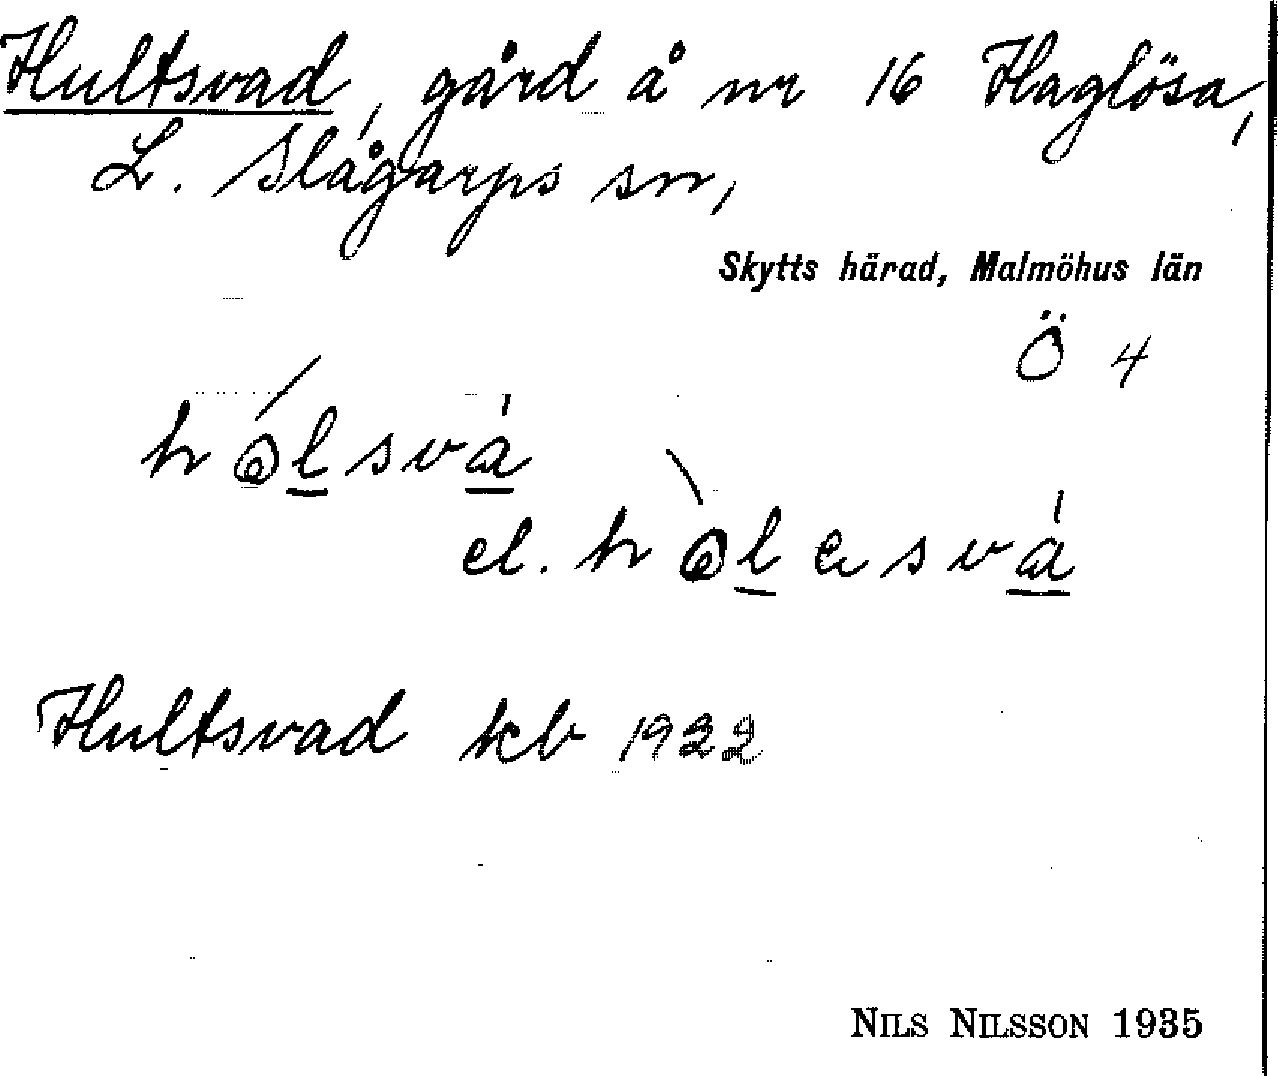 Hultsvad, gård å nr 16 Haglösa,
L. Slågarps sn,
Skytts härad, Malmöhus län
Ö 4
el.
Hultsvad kb 1922
NILS NILSSON 1935